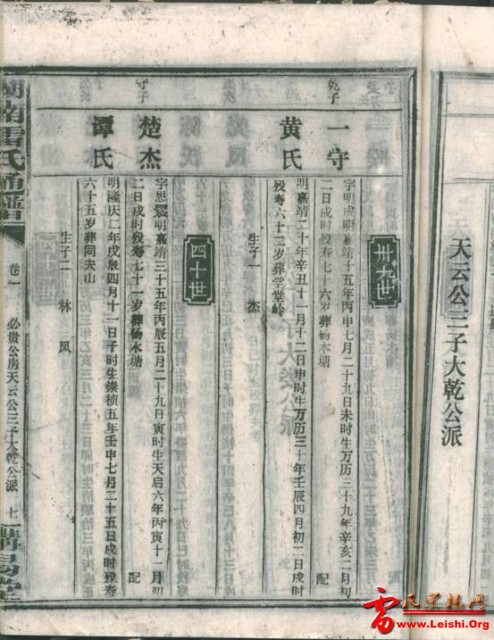 天云公三子大乾公派
卅九世
一守
字明成明嘉靖十五年丙申七月二十九日未时生万历三十九年辛亥二月初
二日戌时殁寿七十六岁葬杨木塘
配
黄氏
明嘉靖二十年辛丑十一月十二日申时生万历三十年壬辰四月初二日戌时
殁寿六十二岁葬学堂岭
生子一 杰
四十世
楚杰
明嘉靖三十五年丙辰五月二十九日寅时生天启六年丙寅十一月初
二日戌时殁寿七十一岁葬杨木塘
配
谭氏
明隆庆二年戊辰四月十一日子时生崇祯五年壬申七月二十五日戌时殁寿
六十五岁葬同夫山
生子二 林 凤
湖南雷氏通谱
卷一
必贵公房天云公三子大乾公派
七
www.Leishi.Org